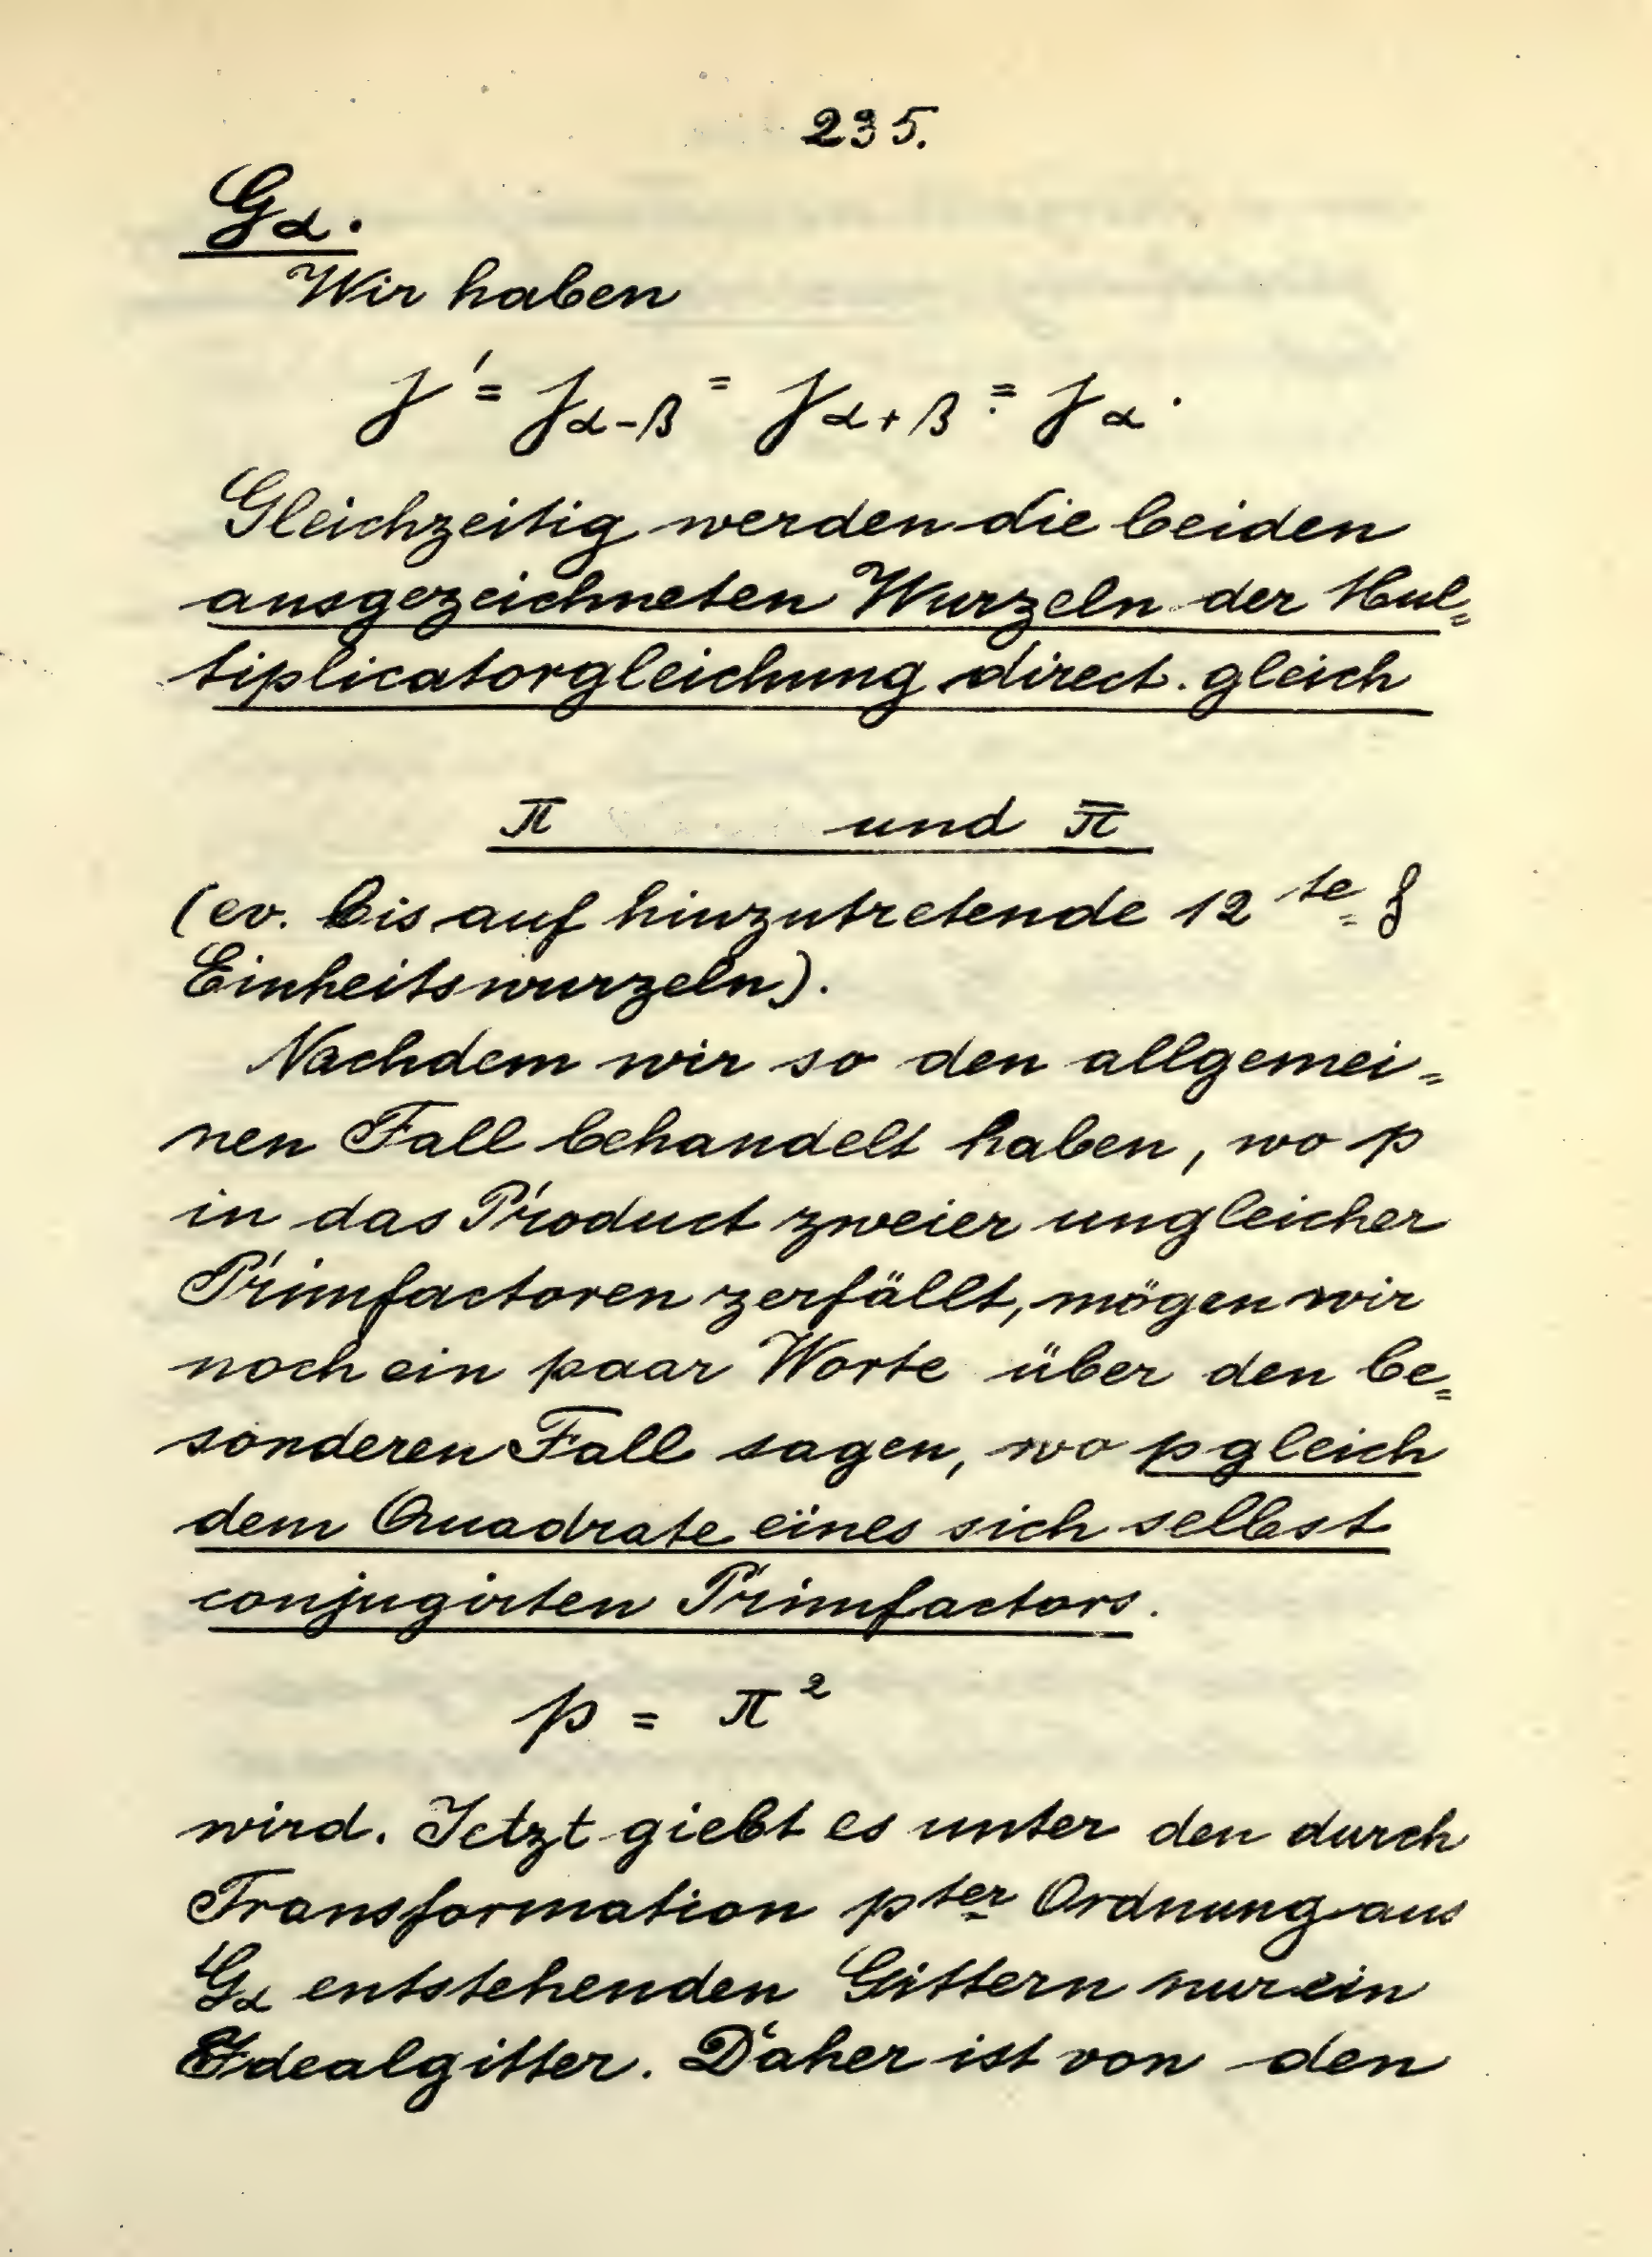 235.
Gα.
Wir haben
j' = jα-β = jα+β = jα.
Gleichzeitig werden die beiden
ausgezeichneten Wurzeln der Mul=
tiplicatorgleichung direct. gleich
π und π̄
(ev. bis auf hinzutretende 12te
Einheitswurzeln).
Nachdem wir so den allgemei=
nen Fall behandelt haben, wo p
in das Product zweier ungleicher
Primfactoren zerfällt, mögen wir
noch ein paar Worte über den be=
sonderen Fall sagen, wo p gleich
dem Quadrate eines sich selbst
conjugirten Primfactors.
p = π²
wird. Jetzt giebt es unter den durch
Transformation pter Ordnung aus
Gα entstehenden Gittern nur ein
Idealgitter. Daher ist von den